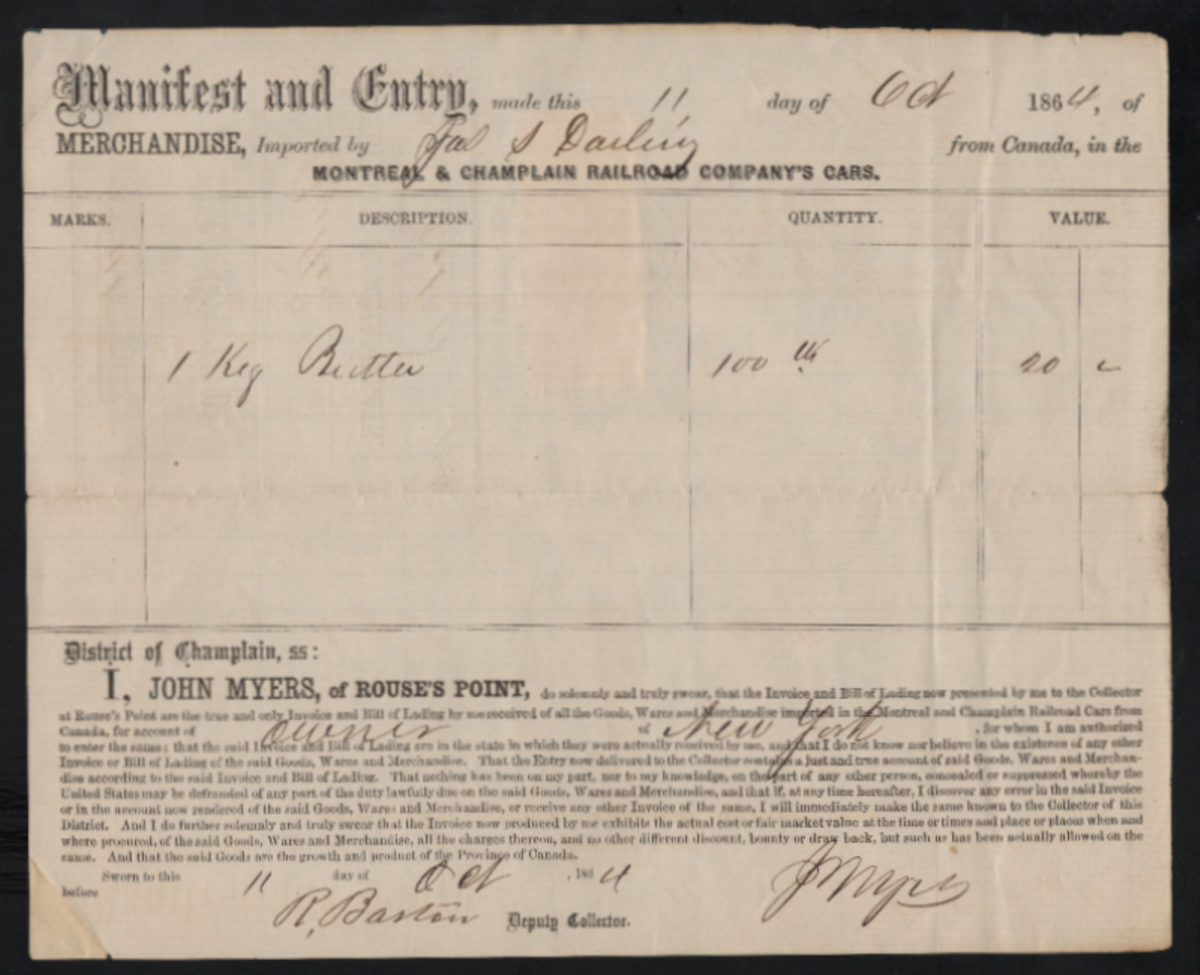 Manifest and Entry, made this 11 day of Oct 1864, of
MERCHANDISE, Imported by Jas S Darling from Canada, in the
MONTREAL & CHAMPLAIN RAILROAD COMPANY'S CARS.
MARKS. DESCRIPTION. QUANTITY. VALUE.
1 Keg Butter 100 lb 20
District of Champlain, ss:
I, JOHN MYERS, of ROUSE'S POINT, do solemnly and truly swear, that the Invoice and Bill of Lading now presented by me to the Collector
at Rouse's Point are the true and only Invoice and Bill of Lading by me received of all the Goods, Wares and Merchandise imported in the Montreal and Champlain Railroad Cars from
Canada, for account of owner of New York, for whom I am authorized
to enter the same; that the said Invoice and Bill of Lading are in the state in which they were actually received by me, and that I do not know nor believe in the existence of any other
Invoice or Bill of Lading of the said Goods, Wares and Merchandise. That the Entry now delivered to the Collector contains a just and true account of said Goods, Wares and Merchan-
dise according to the said Invoice and Bill of Lading. That nothing has been on my part, nor to my knowledge, on the part of any other person, concealed or suppressed whereby the
United States may be defrauded of any part of the duty lawfully due on the said Goods, Wares and Merchandise, and that if, at any time hereafter, I discover any error in the said Invoice
or in the account now rendered of the said Goods, Wares and Merchandise, or receive any other Invoice of the same, I will immediately make the same known to the Collector of this
District. And I do further solemnly and truly swear that the Invoice now produced by me exhibits the actual cost or fair market value at the time or times and place or places when and
where procured, of the said Goods, Wares and Merchandise, all the charges thereon, and no other different discount, bounty or draw back, but such as has been actually allowed on the
same. And that the said Goods are the growth and product of the Province of Canada.
Sworn to this 11 day of Oct, 1864
before
R, Barton Deputy Collector. J Myers